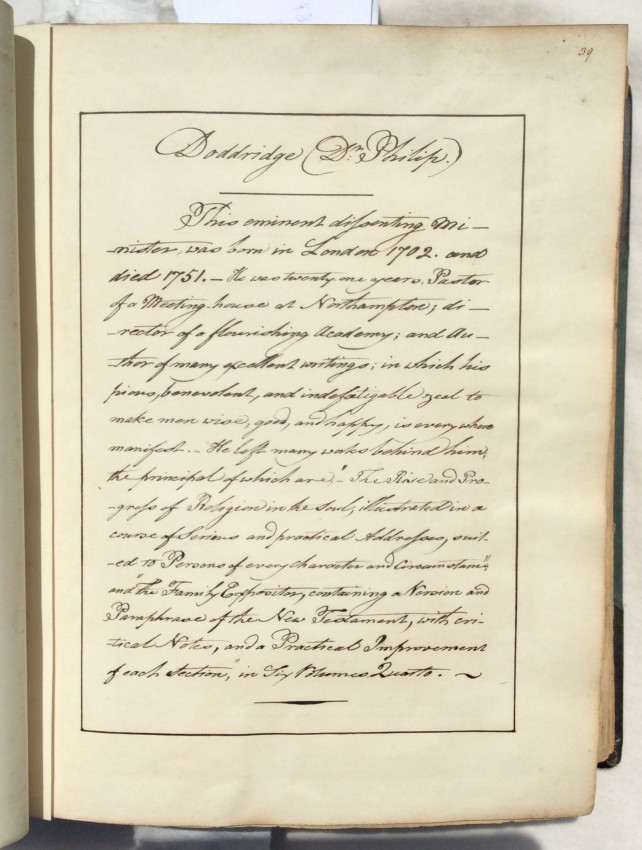 39
Doddridge (Dr. Philip.)
This eminent dissenting Mi-
-nister, was born in London 1702. and
died 1751. - He was twenty one years, Pastor
of a Meeting-house at Northampton; di-
-rector of a flourishing Academy; and Au-
-thor of many excellent writings; in which his
pious, benevolent, and indefatigable zeal to
make men wise, good, and happy, is every where
manifest. - He left many works behind him,
the principal of which are, "The Rise and Pro-
-gress of Religion in the Soul, illustrated in a
course of Serious and practical Addresses, suit-
-ed to Persons of every character and Circumstance",
and "the Family Expositor, containing a Version and
Paraphrase of the New Testament, with cri-
-tical Notes, and a Practical Improvement
of each Section," in Six Volumes Quarto. ~